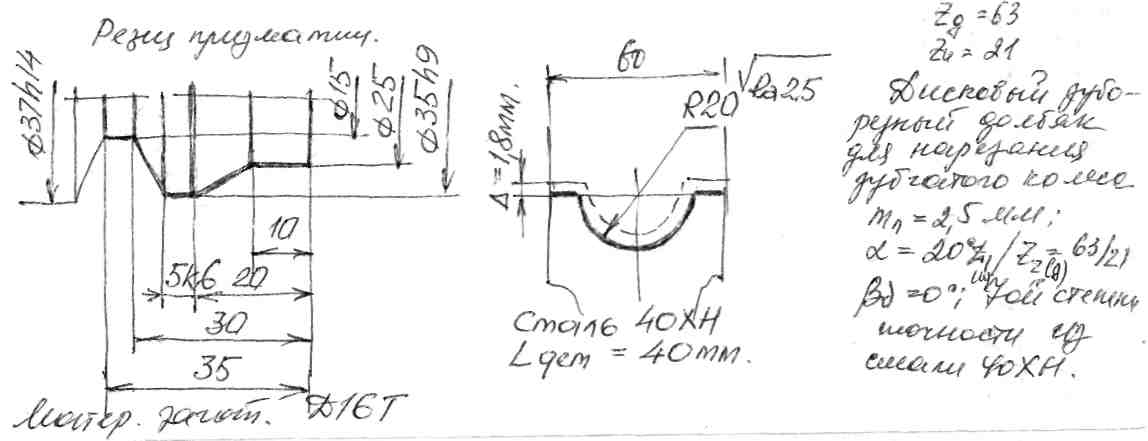 Резец призматич.
ø37h14
ø15
ø25
ø35h9
10
5k6
20
30
35
Матер. загот. Д16Т
60
√Ra25
R20
Δ=1,8мм.
Сталь 40ХН
Lдет = 40мм.
Zд = 63
Zu = 21
Дисковый зубо-
резный долбяк
для нарезания
зубчатого колеса
mn = 2,5 мм;
α = 20° Z1/Z2(д) = 63/21
βд = 0°; 7ой степени
точности из
стали 40ХН.